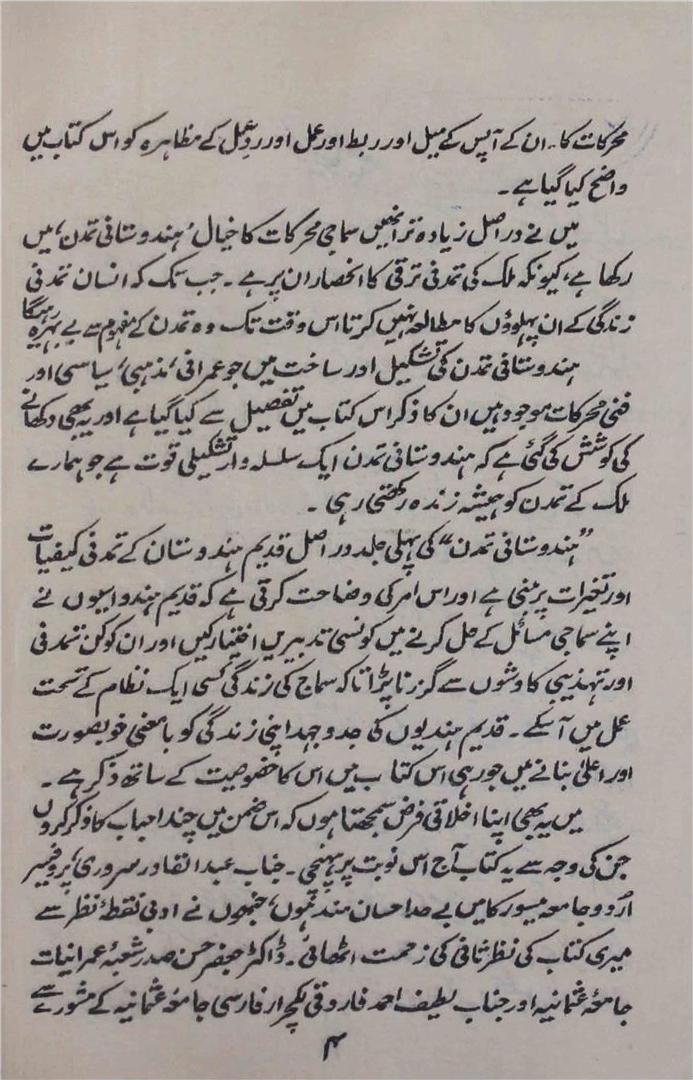 محرکات کا۔ ان کے آپس کے میل اور ربط اور عمل اور ردِعمل کے مظاہرہ کو اس کتاب میں
واضح کیا گیا ہے۔
میں نے دراصل زیادہ تر انھیں سماجی محرکات کا خیال ’ہندوستانی تمدن‘ میں
رکھا ہے، کیونکہ ملک کی تمدنی ترقی کا انحصار ان پر ہے۔ جب تک کہ انسان تمدنی
زندگی کے ان پہلوؤں کا مطالعہ نہیں کرتا اس وقت تک وہ تمدن کے مفہوم سے بے بہرہ رہیگا
ہندوستانی تمدن کی تشکیل اور ساخت میں جو عمرانی، مذہبی، سیاسی اور
فنی محرکات موجود ہیں ان کا ذکر اس کتاب میں تفصیل سے کیا گیا ہے اور یہ بھی دکھانے
کی کوشش کی گئی ہے کہ ہندوستانی تمدن ایک سلسلہ وار تشکیلی قوت ہے جو ہمارے
ملک کے تمدن کو ہمیشہ زندہ رکھتی رہی۔
”ہندوستانی تمدن“ کی پہلی جلد دراصل قدیم ہندوستان کے تمدنی کیفیات
اور تغیرات پر مبنی ہے اور اس امر کی وضاحت کرتی ہے کہ قدیم ہندواسیوں نے
اپنے سماجی مسائل کے حل کرنے میں کونسی تدبیریں اختیار کیں اور ان کو کن تمدنی
اور تہذیبی کاوشوں سے گزرنا پڑا تا کہ سماج کی زندگی کسی ایک نظام کے تحت
عمل میں آسکے۔ قدیم ہندیوں کی جدوجہد اپنی زندگی کو بامعنی خوبصورت
اور اعلیٰ بنانے میں جو رہی اس کتاب میں اس کا خصوصیت کے ساتھ ذکر ہے۔
میں یہ بھی اپنا اخلاقی فرض سمجھتا ہوں کہ اس ضمن میں چند احباب کا ذکر کروں
جن کی وجہ سے یہ کتاب آج اس نوبت پر پہنچی۔ جناب عبدالقادر سروری، پروفیسر
اُردو جامعہ میسور کا میں بے حد احسان مند ہوں، جنہوں نے ادبی نقطۂ نظر سے
میری کتاب کی نظر ثانی کی زحمت اٹھائی۔ ڈاکٹر جعفر حسن صدر شعبۂ عمرانیات
جامعۂ عثمانیہ اور جناب لطیف احمد فاروقی لکچرار فارسی جامعۂ عثمانیہ کے مشورے سے
۴